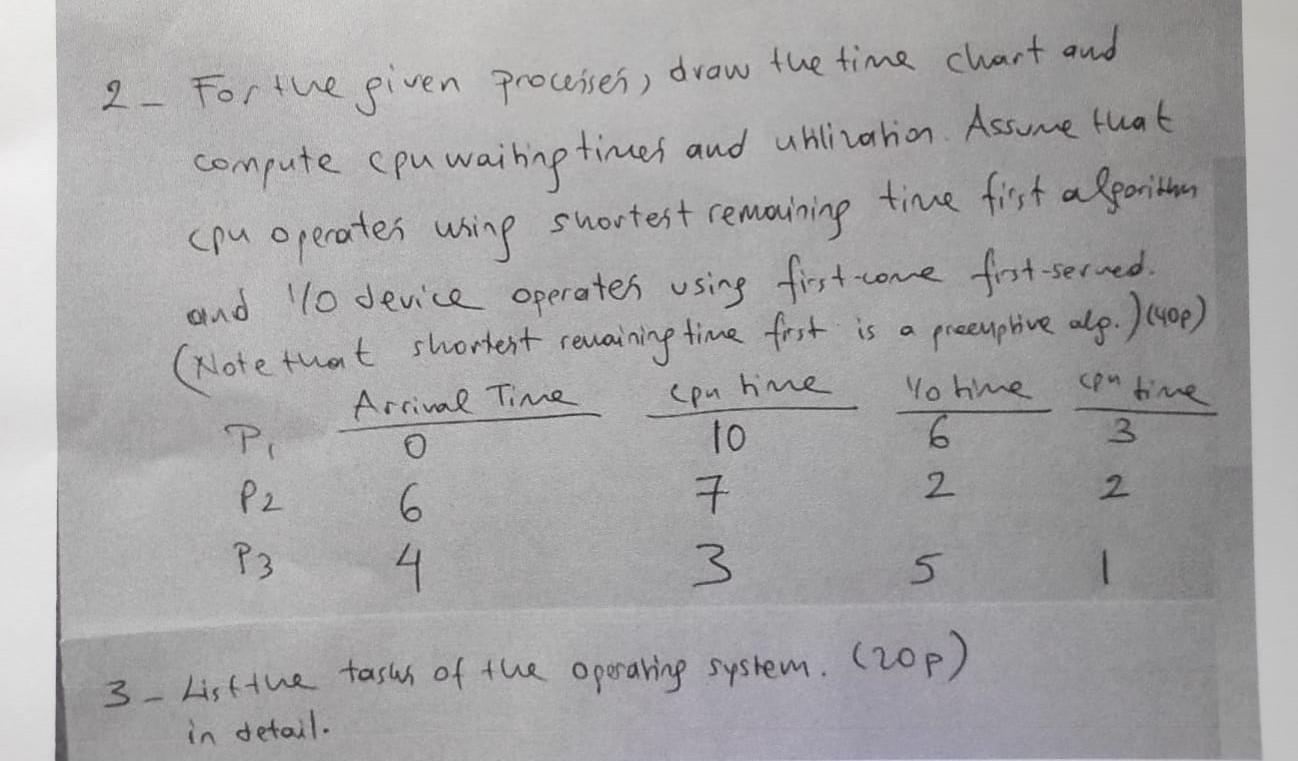 2- For the given processes, draw the time chart and
compute cpu waiting times and utilization. Assume that
cpu operates using shortest remaining time first algorithm
and I/O device operates using first-come first-served.
(Note that shortest remaining time first is a preemptive alg.) (40p)
Arrival Time cpu time I/o time cpu time
P1 0 10 6 3
P2 6 7 2 2
P3 4 3 5 1
3- List the tasks of the operating system. (20p)
in detail.